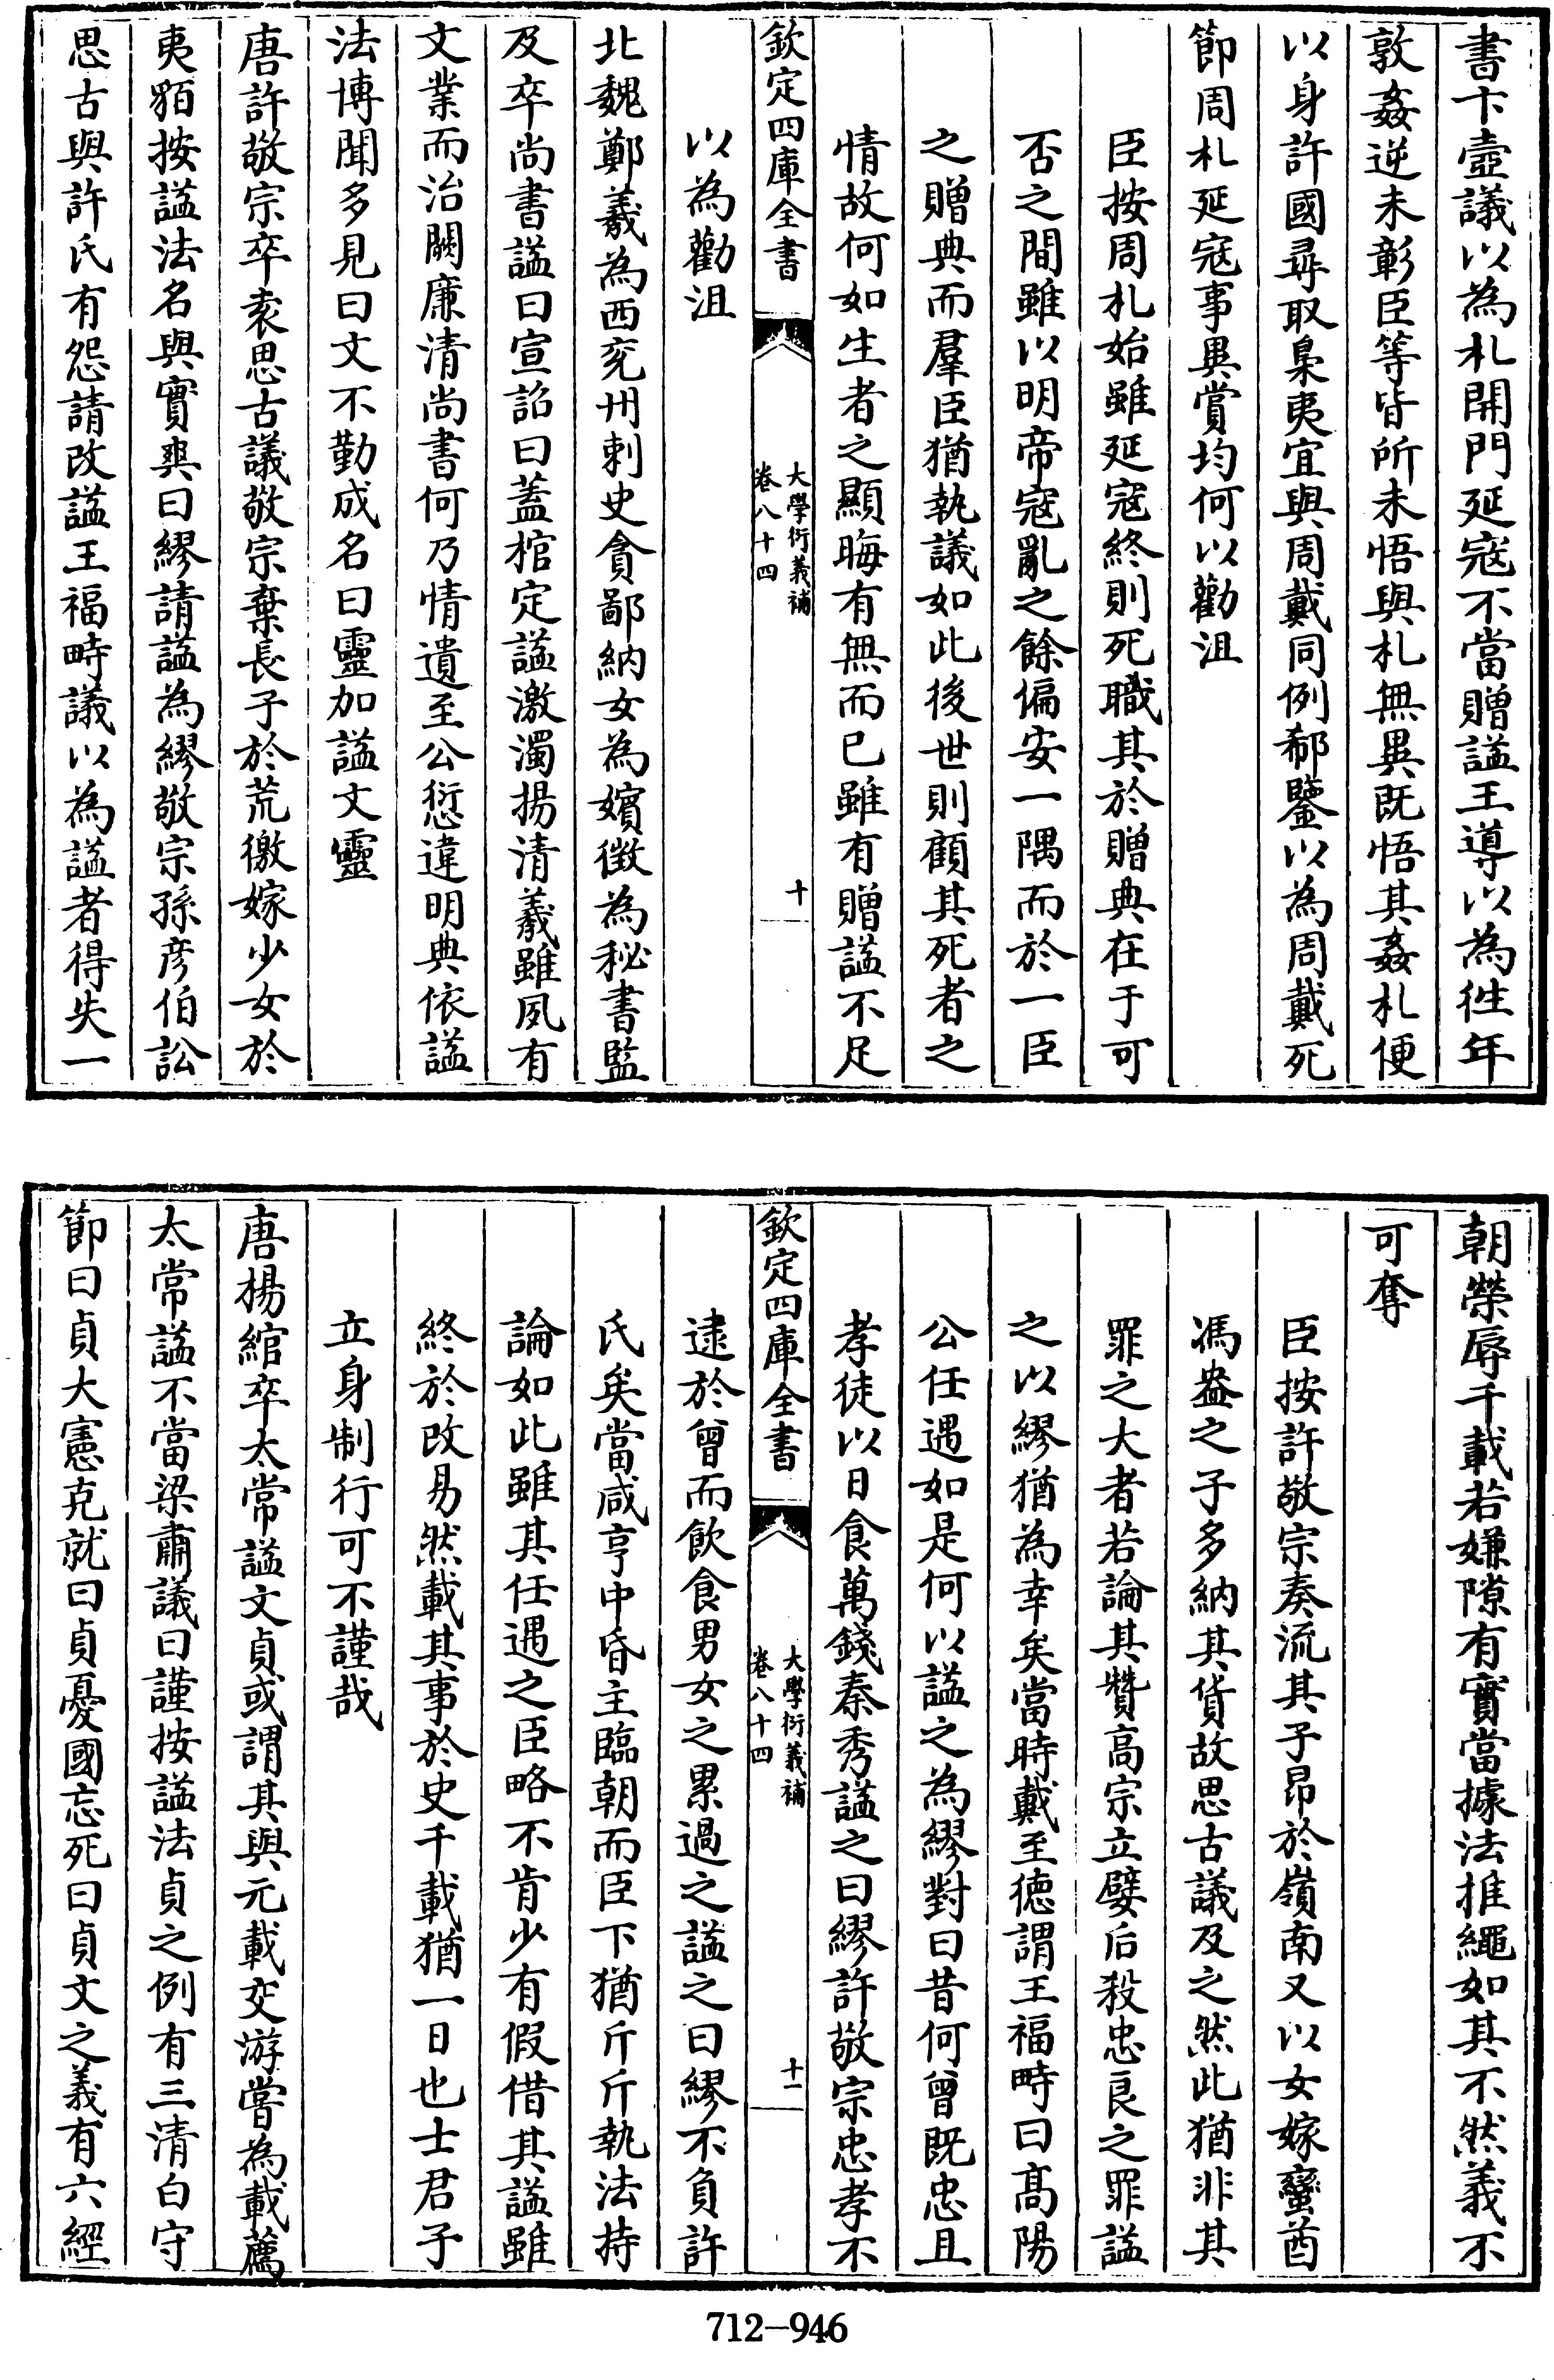 書卞壼議以為札開門延寇不當贈諡王導以為徃年
敦姦逆未彰臣等皆所未悟與札無異既悟其姦札便
以身許國尋取梟夷宜與周戴同例郗鑒以為周戴死
節周札延寇事異賞均何以勸沮
臣按周札始雖延寇終則死職其於贈典在于可
否之間雖以明帝寇亂之餘偏安一隅而於一臣
之贈典而羣臣猶執議如此後世則顧其死者之
情故何如生者之顯晦有無而已雖有贈諡不足
欽定四庫全書
大學衍義補
卷八十四
十
以為勸沮
北魏鄭羲為西兖州刺史貪鄙納女為嬪徴為秘書監
及卒尚書諡曰宣詔曰蓋棺定諡激濁揚清羲雖夙有
文業而治闕廉清尚書何乃情遺至公愆違明典依諡
法博聞多見曰文不勤成名曰靈加諡文靈
唐許敬宗卒袁思古議敬宗棄長子於荒徼嫁少女於
夷貊按諡法名與實爽曰繆請諡為繆敬宗孫彦伯訟
思古與許氏有怨請改諡王福畤議以為諡者得失一
朝榮辱千載若嫌隙有實當據法推繩如其不然義不
可奪
臣按許敬宗奏流其子昂於嶺南又以女嫁蠻酋
馮盎之子多納其貨故思古議及之然此猶非其
罪之大者若論其贊高宗立嬖后殺忠良之罪諡
之以繆猶為幸矣當時戴至德謂王福畤曰髙陽
公任遇如是何以諡之為繆對曰昔何曾既忠且
孝徒以日食萬錢秦秀諡之曰繆許敬宗忠孝不
欽定四庫全書
大學衍義補
卷八十四
十一
逮於曾而飲食男女之累過之諡之曰繆不負許
氏矣當咸亨中昏主臨朝而臣下猶斤斤執法持
論如此雖其任遇之臣略不肯少有假借其諡雖
終於改易然載其事於史千載猶一日也士君子
立身制行可不謹哉
唐揚綰卒太常諡文貞或謂其與元載交游嘗為載薦
太常諡不當梁肅議曰謹按諡法貞之例有三清白守
節曰貞大憲克就曰貞憂國忘死曰貞文之義有六經
712-946